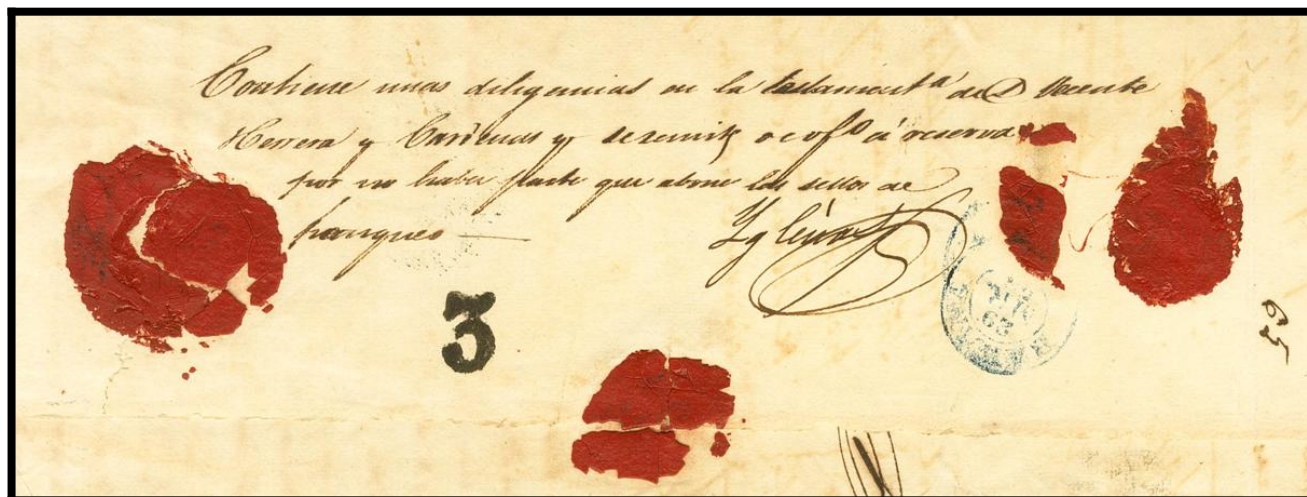 Contiene unas diligencias en la testament.ª de D Vicente
Herrera y Cardenas y se remite de of.º á reserva
por no haber parte que abone los sellos de
franqueo
Yglésias
3
59